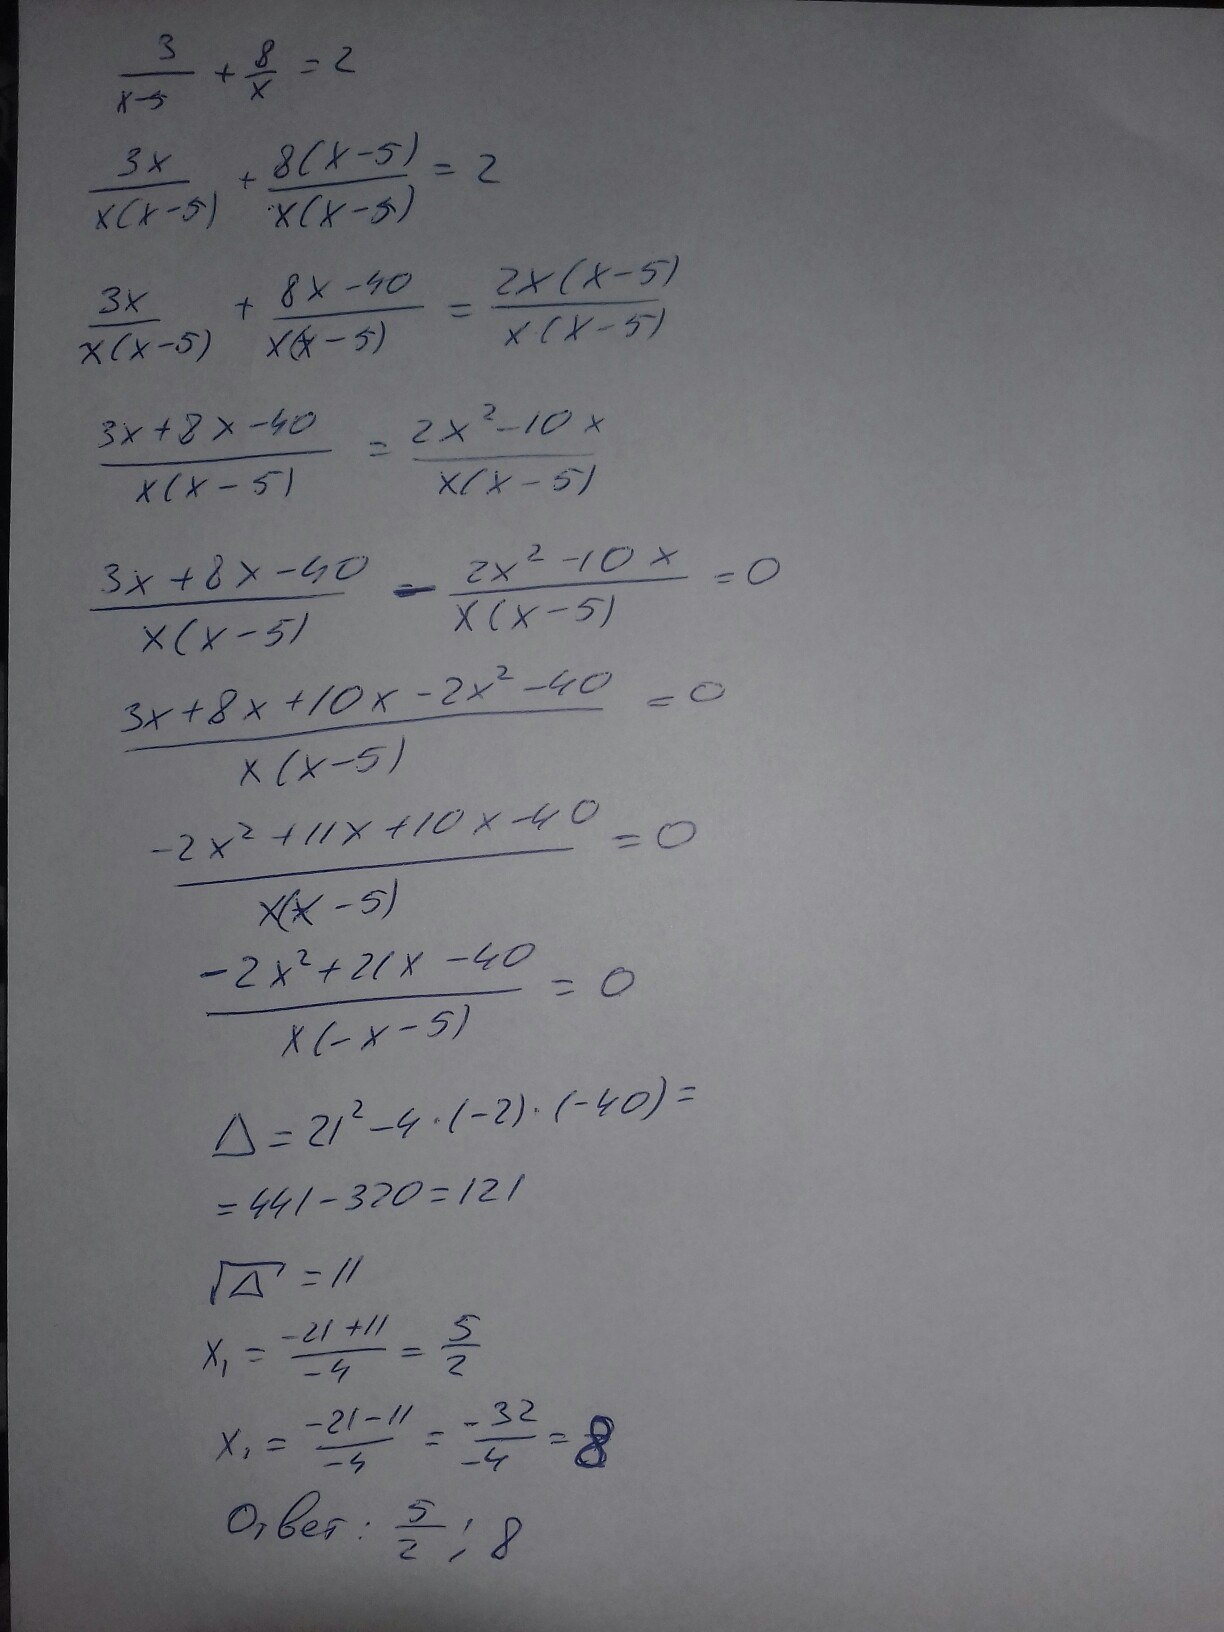 3/(x-5) + 8/x = 2
3x/(x(x-5)) + 8(x-5)/(x(x-5)) = 2
3x/(x(x-5)) + (8x-40)/(x(x-5)) = 2x(x-5)/(x(x-5))
(3x+8x-40)/(x(x-5)) = (2x²-10x)/(x(x-5))
(3x+8x-40)/(x(x-5)) - (2x²-10x)/(x(x-5)) = 0
(3x+8x+10x-2x²-40)/(x(x-5)) = 0
(-2x²+11x+10x-40)/(x(x-5)) = 0
(-2x²+21x-40)/(x(-x-5)) = 0
Δ = 21²-4·(-2)·(-40) =
= 441-320 = 121
√Δ = 11
x₁ = (-21+11)/(-4) = 5/2
x₁ = (-21-11)/(-4) = (-32)/(-4) = 8
Ответ: 5/2; 8